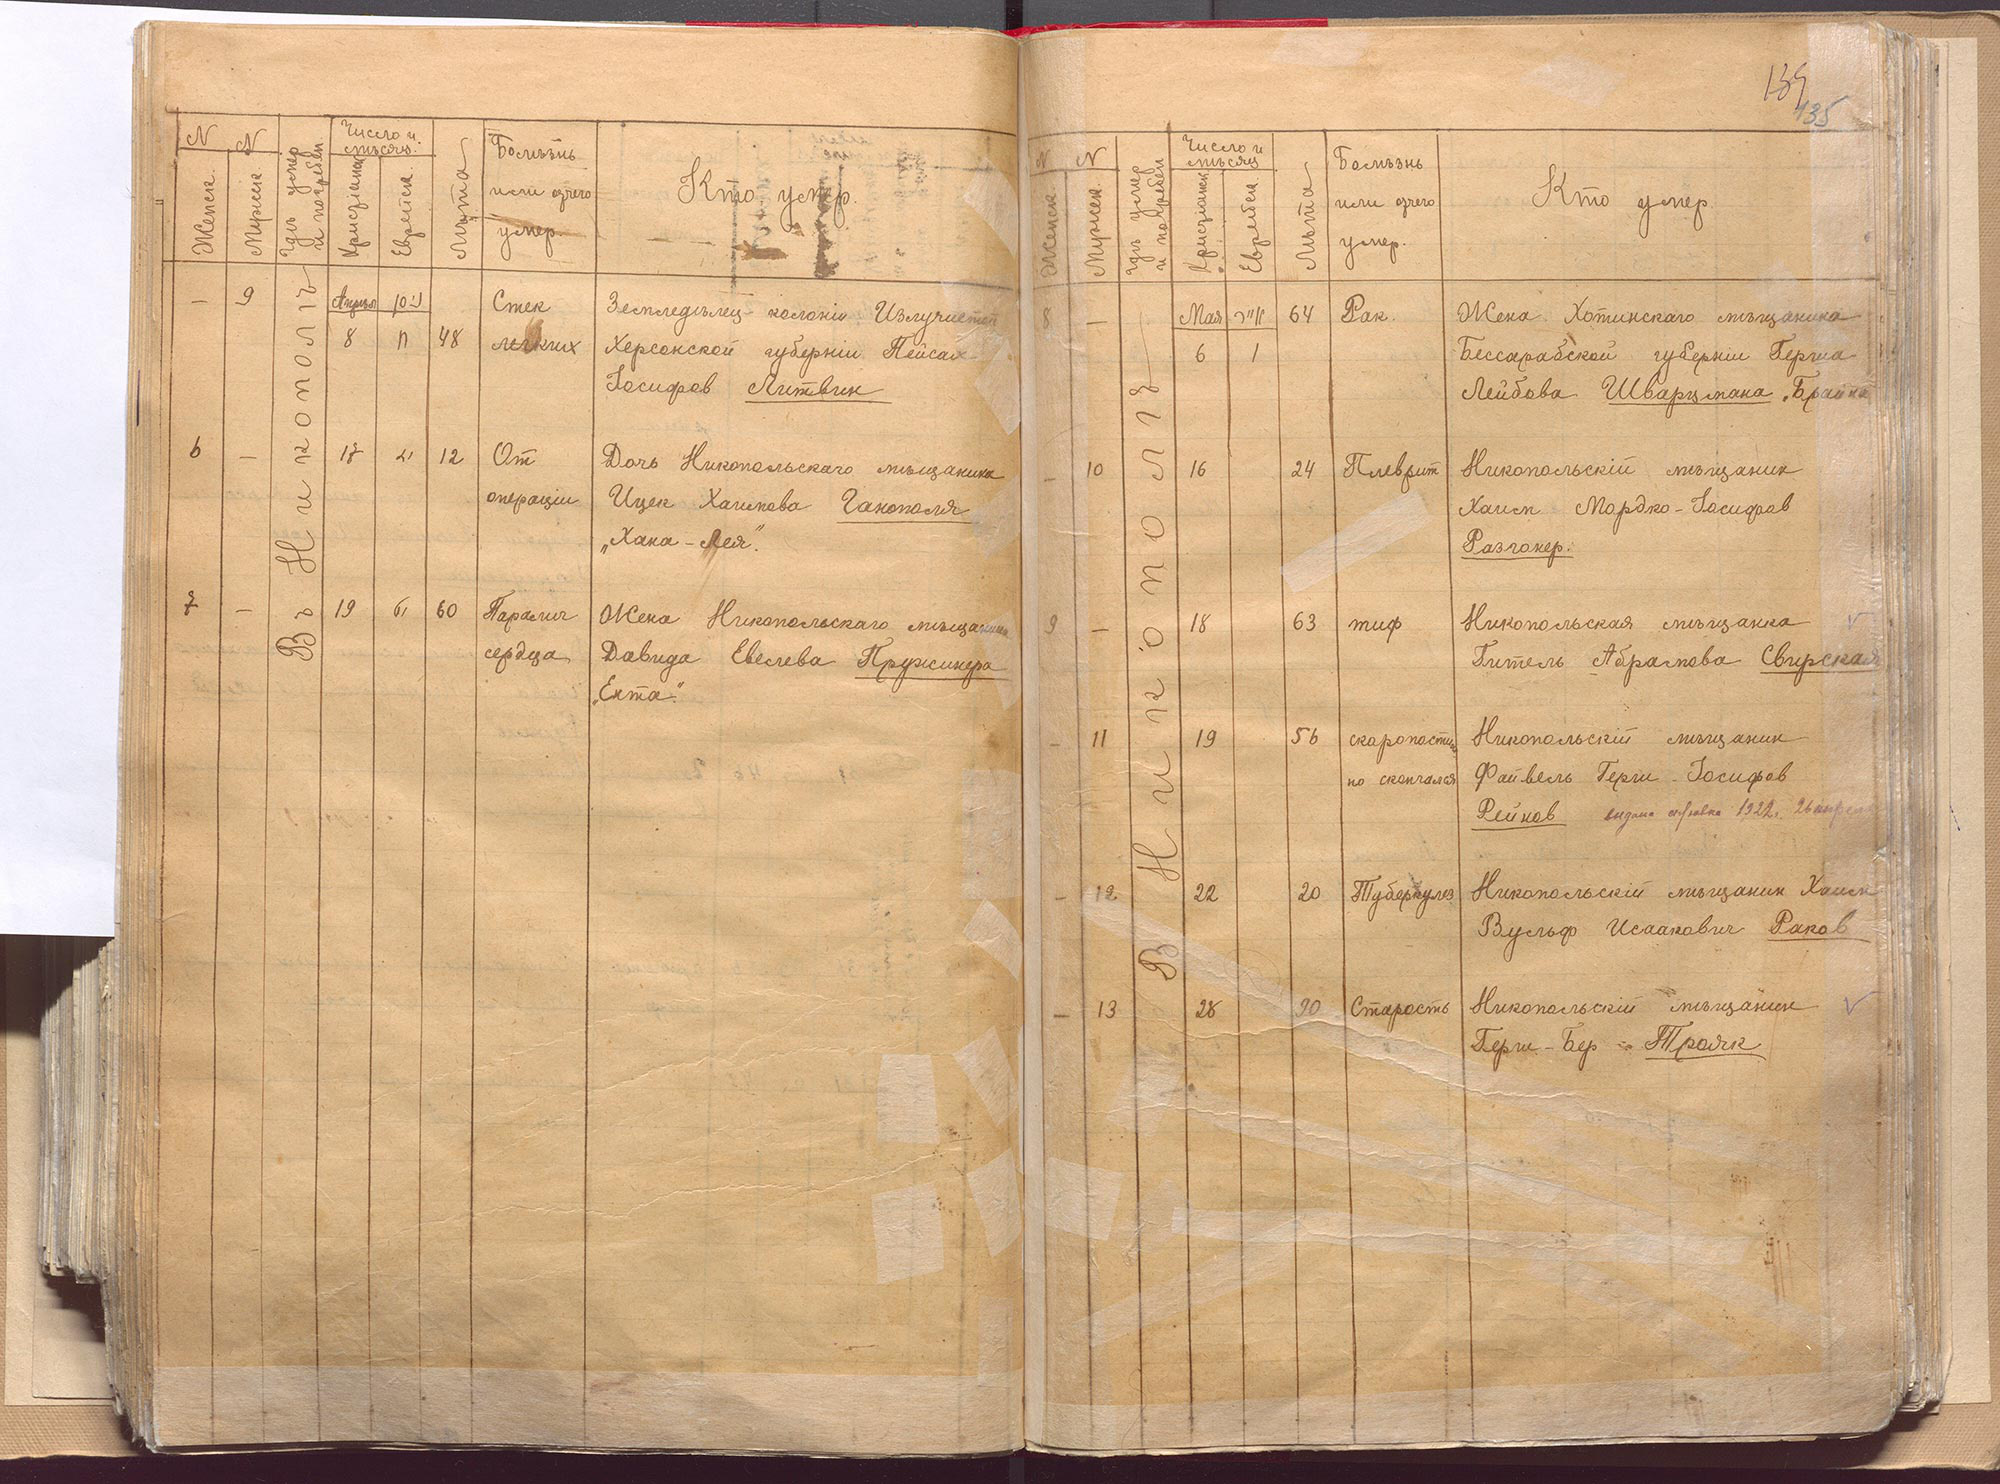 139
135
N
N
Женск.
Мужск
Гдѣ умер и погребен
Число и мѣсяц.
Христіанск
Еврейск.
Лѣта
Болѣзнь
или отчего
умер.
Кто умер.
Въ Никополѣ
— 9 Апрѣль Стек Земледѣлец колоніи Излучистой
8 48 легких Херсонской губерніи Пейсах
Іосифов Литвин
6 — 12 От Дочь Никопольскаго мѣщанина
операціи Ицек Хаимова Ганополя
„Хана-Лея".
7 — 19 60 Паралич Жена Никопольскаго мѣщанина
сердца Давида Евелева Пружинера
„Ента".
N
N
Женск
Мужск.
Гдѣ умер и погребен
Число и мѣсяц
Христіанск
Еврейск
Лѣта
Болѣзнь
или отчего
умер.
Кто умер.
В Никополѣ
8 — Мая 64 Рак. Жена Хотинскаго мѣщанина
6 Бессарабской губерніи Герша
Лейбова Шварцмана „Брайна
— 10 16 24 Плеврит Никопольскій мѣщанин
Хаим Мордко-Іосифов
Разгонер.
9 — 18 63 тиф Никопольская мѣщанка
Гитель Абрамова Свирская
— 11 19 56 скоропостиж Никопольскій мѣщанин
но скончался Файвель Герш-Іосифов
Рейнов выдана 1922. 26 апреля
— 12 22 20 Туберкулез Никопольскій мѣщанин Хаим
Вульф Исаакович Раков
— 13 28 90 Старость Никопольскій мѣщанин
Герш-Бер Трояк